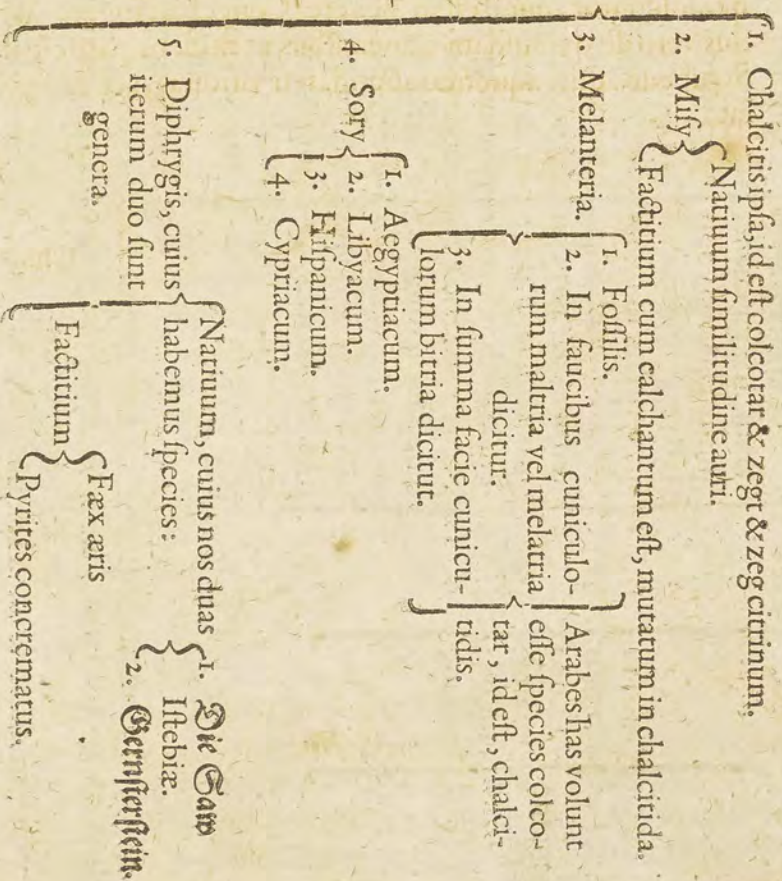 1. Chalcitis ipſa, id eſt colcotar & zegt & zeg citrinum.
2. Miſy
Natiuum ſimilitudine auri.
Factitium cum calchantum eſt, mutatum in chalcitida.
3. Melanteria.
1. Foſſilis.
2. In faucibus cuniculo-
rum maltria vel melatria
dicitur.
3. In ſumma facie cunicu-
lorum bitria dicitut.
Arabes has volunt
eſſe ſpecies colco-
tar, id eſt, chalci-
tidis.
4. Sory
1. Aegyptiacum.
2. Libyacum.
3. Hiſpanicum.
4. Cypriacum.
5. Diphrygis, cuius
iterum duo ſunt
genera.
Natiuum, cuius nos duas
habemus ſpecies:
1. Die Saw
Iſtebiæ.
2. Gernſterſtein.
Factitium
Fæx æris
Pyrites concrematus.